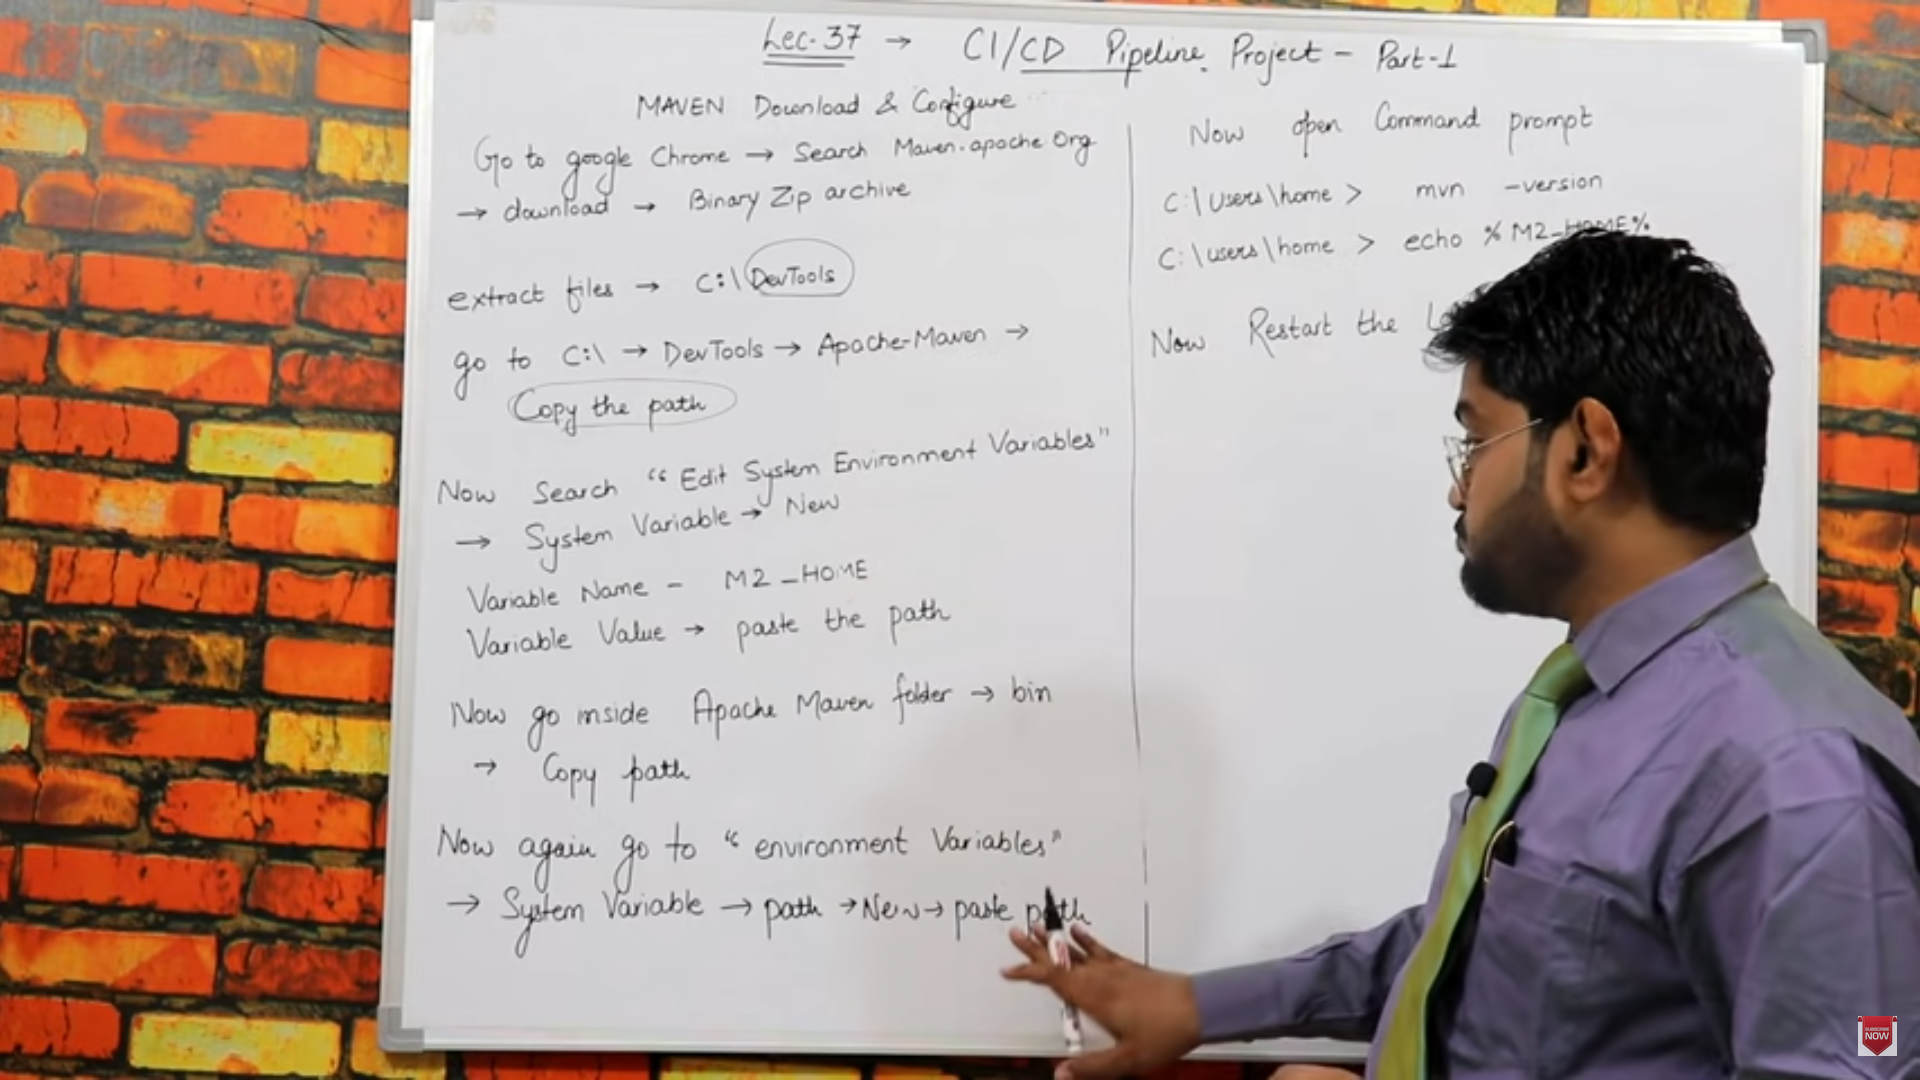 Lec. 37 → CI/CD Pipeline Project - Part-1
MAVEN Download & Configure
Go to google Chrome → Search Maven.apache Org
→ download → Binary Zip archive
extract files → C:\DevTools
go to C:\ → DevTools → Apache-Maven →
Copy the path
Now Search "Edit System Environment Variables"
→ System Variable → New
Variable Name - M2_HOME
Variable Value → paste the path
Now go inside Apache Maven folder → bin
→ Copy path
Now again go to "environment Variables"
→ System Variable → path → New → paste path
Now open Command prompt
C:\Users\home > mvn -version
C:\users\home > echo %M2_HOME%
Now Restart the
SUBSCRIBE
NOW